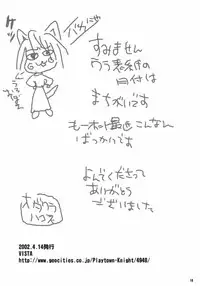 すみません
ウラ表紙の
日付は
まちがいです
もーホント最近こんなん
ばっかりです
よんでくださって
ありがとう
ございました
2002.4.14発行
VISTA
http://www.geocities.co.jp/Playtown-Knight/4940/